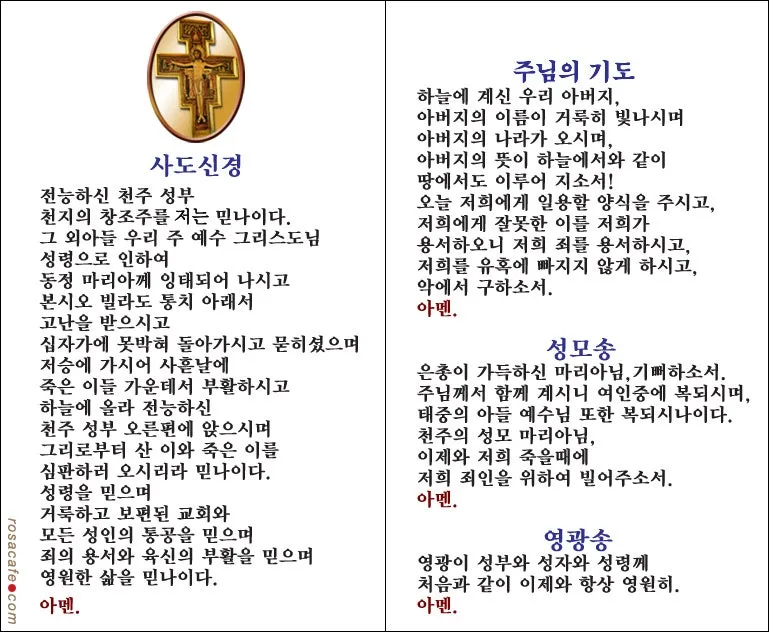 사도신경
전능하신 천주 성부
천지의 창조주를 저는 믿나이다.
그 외아들 우리 주 예수 그리스도님
성령으로 인하여
동정 마리아께 잉태되어 나시고
본시오 빌라도 통치 아래서
고난을 받으시고
십자가에 못박혀 돌아가시고 묻히셨으며
저승에 가시어 사흗날에
죽은 이들 가운데서 부활하시고
하늘에 올라 전능하신
천주 성부 오른편에 앉으시며
그리로부터 산 이와 죽은 이를
심판하러 오시리라 믿나이다.
성령을 믿으며
거룩하고 보편된 교회와
모든 성인의 통공을 믿으며
죄의 용서와 육신의 부활을 믿으며
영원한 삶을 믿나이다.
아멘.
rosacafe.com
주님의 기도
하늘에 계신 우리 아버지,
아버지의 이름이 거룩히 빛나시며
아버지의 나라가 오시며,
아버지의 뜻이 하늘에서와 같이
땅에서도 이루어 지소서!
오늘 저희에게 일용할 양식을 주시고,
저희에게 잘못한 이를 저희가
용서하오니 저희 죄를 용서하시고,
저희를 유혹에 빠지지 않게 하시고,
악에서 구하소서.
아멘.
성모송
은총이 가득하신 마리아님,기뻐하소서.
주님께서 함께 계시니 여인중에 복되시며,
태중의 아들 예수님 또한 복되시나이다.
천주의 성모 마리아님,
이제와 저희 죽을때에
저희 죄인을 위하여 빌어주소서.
아멘.
영광송
영광이 성부와 성자와 성령께
처음과 같이 이제와 항상 영원히.
아멘.